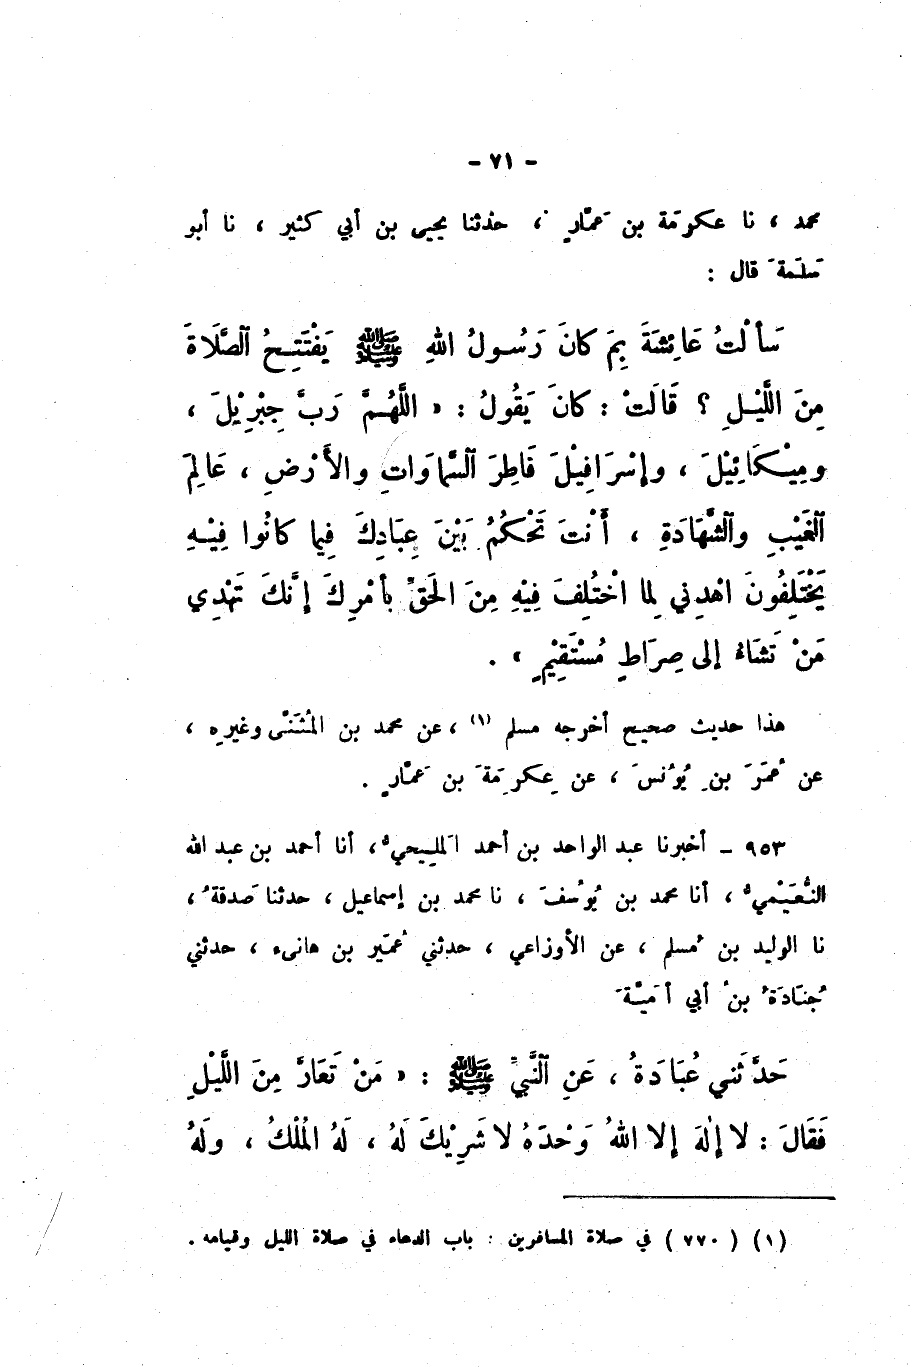 - ٧١ -
محمد ، نا عكرمَة بن عَمَّارٍ ، حدثنا يحيى بن أبي كثير ، نا أبو
سَلَمةَ قال :
سَألْتُ عَائِشَةَ بِمَ كانَ رَسُولُ اللهِ ﷺ يَفْتَتِحُ ٱلصَّلَاةَ
مِنَ اللَّيْلِ ؟ قَالَتْ : كانَ يَقُولُ : « اللَّهُمَّ رَبَّ جِبْرِيْلَ ،
ومِيْكَائِيْلَ ، وإسْرَافِيْلَ فَاطِرَ ٱلسَّمَاوَاتِ والأَرْضِ ، عَالِمَ
ٱلغَيْبِ وٱلشَّهَادَةِ ، أَنْتَ تَحْكُمُ بَيْنَ عِبَادِكَ فِيما كانُوا فِيْهِ
يَخْتَلِفُونَ اهْدِني لِما اخْتُلِفَ فِيْهِ مِنَ الحَقِّ بأمْرِكَ إنَّكَ تَهْدِي
مَنْ تَشَاءُ إلى صِرَاطٍ مُسْتَقِيْمٍ » .
هذا حديث صحيح أخرجه مسلم (١) ، عن محمد بن المُثَنَّى وغيرِه ،
عن عُمَرَ بنِ يُونُسَ ، عن عِكرِمَةَ بن عَمَّارٍ .
٩٥٣ – أخبرنا عبد الواحد بن أحمد المَلِيحيُّ ، أنا أحمد بن عبد الله
النُّعَيْميُّ ، أنا محمد بن يُوسُفَ ، نا محمد بن إسماعيل ، حدثنا صَدقةُ ،
نا الوليد بن مُسلم ، عن الأوزاعي ، حدثني عُمَير بن هانىء ، حدثني
جُنَادَةُ بنُ أبي أُمَيَّةَ
حَدَّثَني عُبَادَةُ ، عَنِ ٱلنَّبيِّ ﷺ : « مَنْ تَعَارَّ مِنَ اللَّيْلِ
فَقَالَ : لا إلٰهَ إلا اللهُ وَحْدَهُ لا شَرِيْكَ لَهُ ، لَهُ المُلْكُ ، ولَهُ
(١) ( ٧٧٠ ) في صلاة المسافرين : باب الدعاء في صلاة الليل وقيامه .